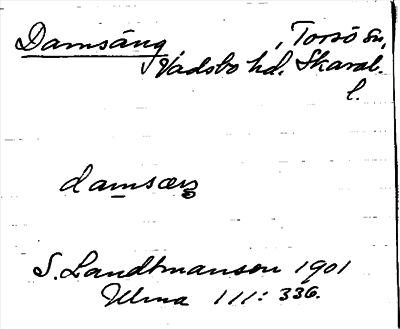 Damsäng, Torsö sn,
Vadsbo hd. Skarab.
l.
damsæŋ
S. Landtmanson 1901
Ulma 111: 336.